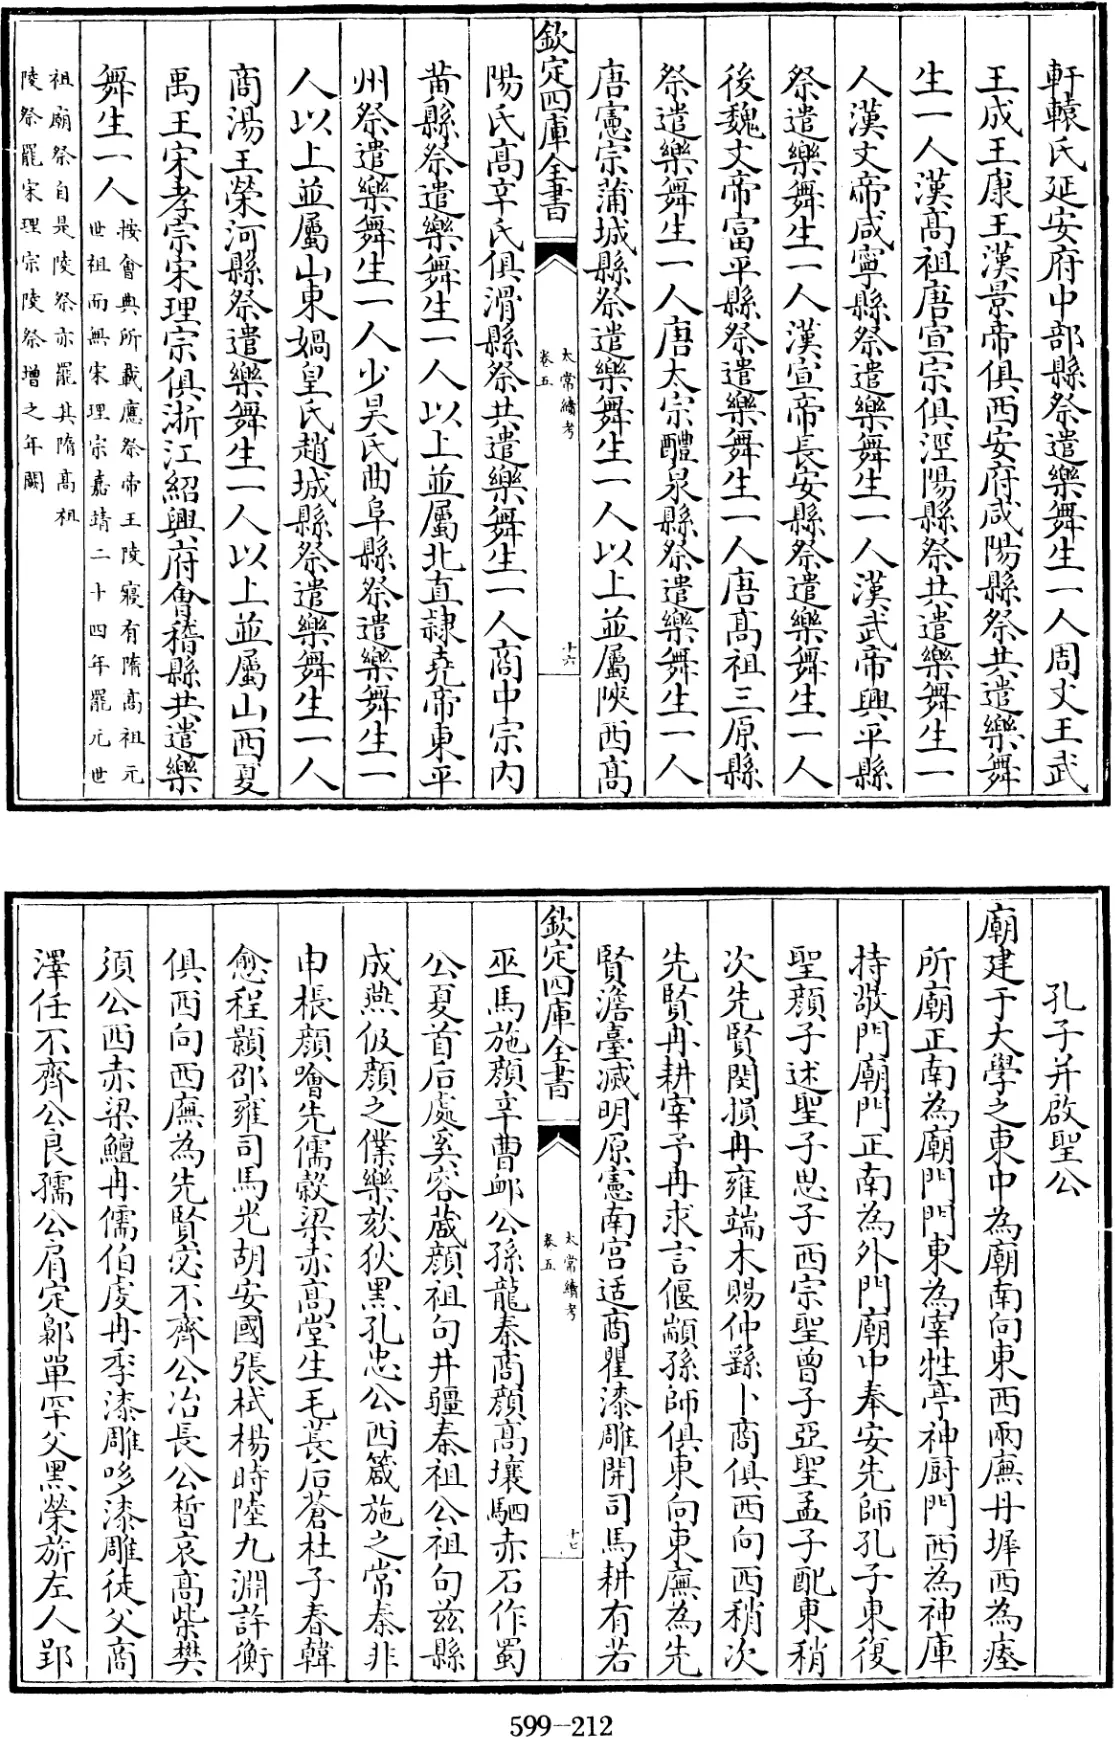 軒轅氏延安府中部縣祭遣樂舞生一人周文王武
王成王康王漢景帝俱西安府咸陽縣祭共遣樂舞
生一人漢高祖唐宣宗俱涇陽縣祭共遣樂舞生一
人漢文帝咸寧縣祭遣樂舞生一人漢武帝興平縣
祭遣樂舞生一人漢宣帝長安縣祭遣樂舞生一人
後魏文帝富平縣祭遣樂舞生一人唐高祖三原縣
祭遣樂舞生一人唐太宗醴泉縣祭遣樂舞生一人
唐憲宗蒲城縣祭遣樂舞生一人以上並屬陝西高
欽定四庫全書
太常續考
卷五
十六
陽氏高辛氏俱滑縣祭共遣樂舞生一人商中宗内
黄縣祭遣樂舞生一人以上並屬北直隷堯帝東平
州祭遣樂舞生一人少昊氏曲阜縣祭遣樂舞生一
人以上並屬山東媧皇氏趙城縣祭遣樂舞生一人
商湯王榮河縣祭遣樂舞生一人以上並屬山西夏
禹王宋孝宗宋理宗俱浙江紹興府會稽縣共遣樂
舞生一人
按會典所載應祭帝王陵寢有隋高祖元
世祖而無宋理宗嘉靖二十四年罷元世
祖廟祭自是陵祭亦罷其隋高祖
陵祭罷宋理宗陵祭增之年闕
孔子并啟聖公
廟建于大學之東中為廟南向東西兩廡丹墀西為瘞
所廟正南為廟門門東為宰牲亭神厨門西為神庫
持敬門廟門正南為外門廟中奉安先師孔子東復
聖顔子述聖子思子西宗聖曾子亞聖孟子配東稍
次先賢閔損冉雍端木賜仲繇卜商俱西向西稍次
先賢冉耕宰予冉求言偃顓孫師俱東向東廡為先
賢澹臺滅明原憲南宫适商瞿漆雕開司馬耕有若
欽定四庫全書
太常續考
卷五
十七
巫馬施顔辛曹卹公孫龍秦商顔高壤駟赤石作蜀
公夏首后處奚容蒧顔祖句井疆秦祖公祖句兹縣
成燕伋顔之僕樂欬狄黑孔忠公西蒧施之常秦非
申棖顔噲先儒榖梁赤高堂生毛萇后蒼杜子春韓
愈程顥邵雍司馬光胡安國張栻楊時陸九淵許衡
俱西向西廡為先賢宓不齊公冶長公晳哀高柴樊
須公西赤梁鱣冉儒伯虔冉季漆雕哆漆雕徒父商
澤任不齊公良孺公肩定鄡單罕父黑榮旂左人郢
599-212